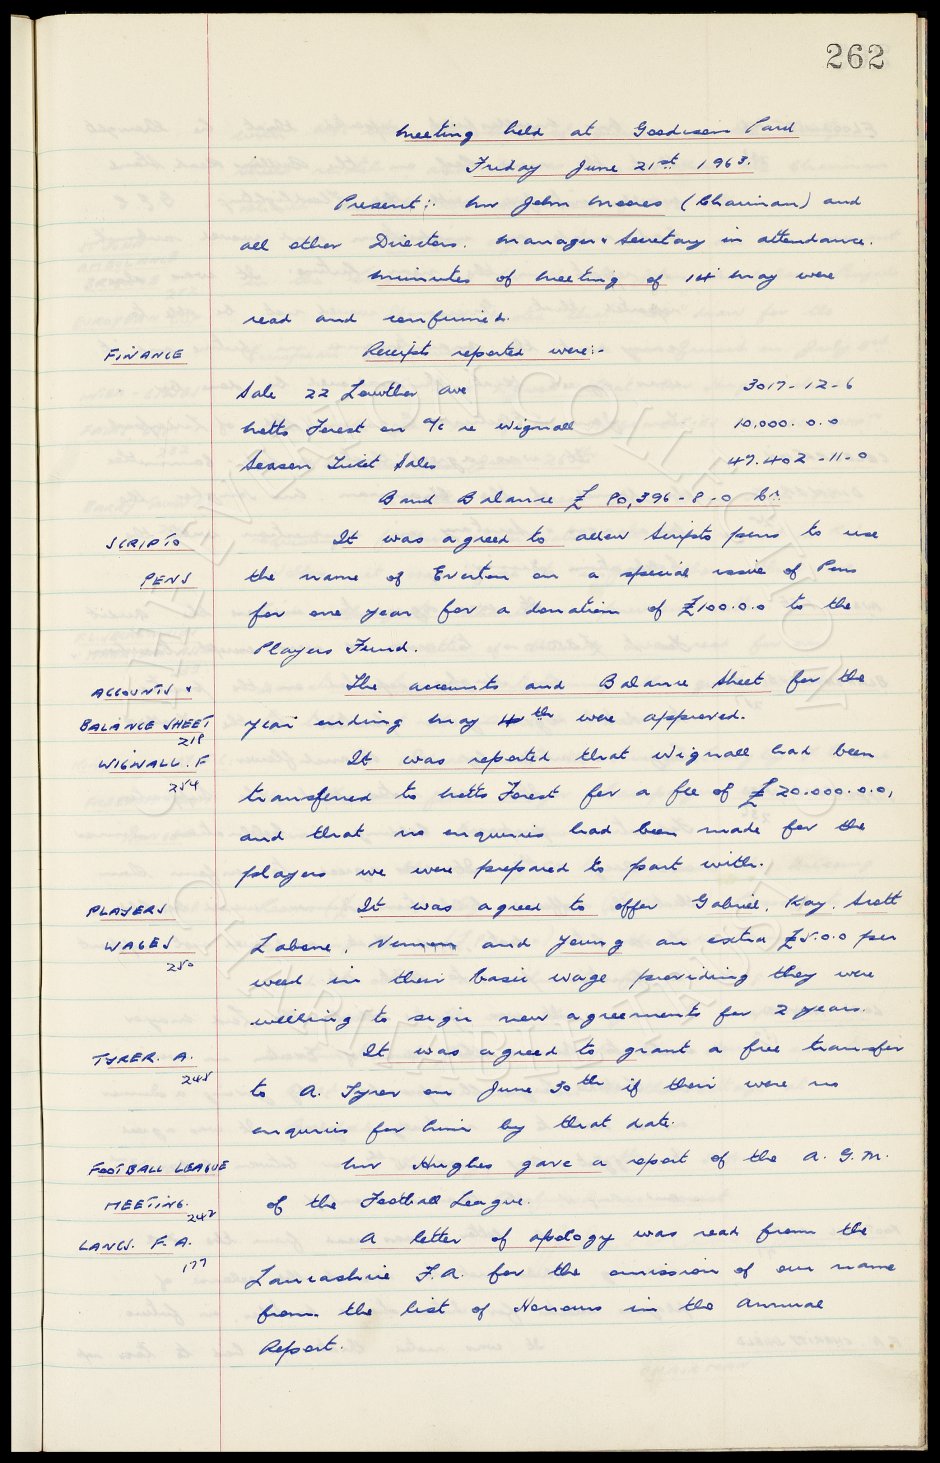 262
Meeting held at Goodison Park
Friday June 21st 1963.
Present:- Mr John Moores (Chairman) and
all other Directors. Manager & Secretary in attendance.
Minutes of Meeting of 14 May were
read and confirmed.
FINANCE
Receipts reported were:-
Sale 22 Lowther Ave 3017-12-6
Notts Forest on a/c re Wignall 10,000.0.0
Season Ticket Sales 47.402-11-0
Bank Balance £ 80,396-8-0 Cr.
SCRIPTO
PENS
It was agreed to allow Scripto pens to use
the name of Everton on a special issue of Pens
for one year for a donation of £100.0.0 to the
Players Fund.
ACCOUNTS &
BALANCE SHEET
218
The accounts and Balance Sheet for the
year ending May 4th were approved.
WIGNALL. F
254
It was reported that Wignall had been
transferred to Notts Forest for a fee of £20.000.0.0,
and that no enquiries had been made for the
players we were prepared to part with.
PLAYERS
WAGES
250
It was agreed to offer Gabriel, Kay, Scott
Labone, Vernon and Young an extra £5.0.0 per
week in their basic wage providing they were
willing to sign new agreements for 2 years.
TYRER. A.
245
It was agreed to grant a free transfer
to A. Tyrer on June 30th if their were no
enquiries for him by that date.
FOOTBALL LEAGUE
MEETING.
242
Mr Hughes gave a report of the A.G.M.
of the Football League.
LANCS. F.A.
177
A letter of apology was read from the
Lancashire F.A. for the omission of our name
from the list of Honours in the Annual
Report.